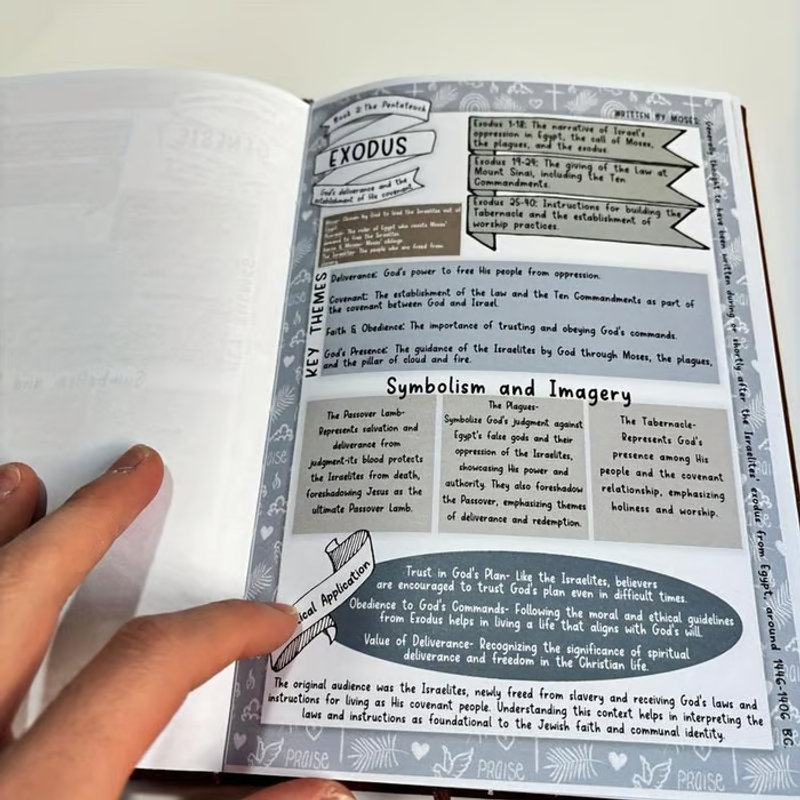 Book 2: The Pentateuch
EXODUS
God's deliverance and the
establishment of His covenant
WRITTEN BY MOSES
Exodus 1-18: The narrative of Israel's
oppression in Egypt, the call of Moses,
the plagues, and the exodus.
Exodus 19-24: The giving of the law at
Mount Sinai, including the Ten
Commandments.
Exodus 25-40: Instructions for building the
Tabernacle and the establishment of
worship practices.
Moses: Chosen by God to lead the Israelites out of
Egypt.
Pharaoh: The ruler of Egypt who resists Moses'
demand to free the Israelites.
Aaron & Miriam: Moses' siblings.
The Israelites: The people who are freed from
KEY THEMES
Deliverance: God's power to free His people from oppression.
Covenant: The establishment of the Law and the Ten Commandments as part of
the covenant between God and Israel.
Faith & Obedience: The importance of trusting and obeying God's commands.
God's Presence: The guidance of the Israelites by God through Moses, the plagues,
and the pillar of cloud and fire.
Symbolism and Imagery
The Passover Lamb-
Represents salvation and
deliverance from
judgment-its blood protects
the Israelites from death,
foreshadowing Jesus as the
ultimate Passover Lamb.
The Plagues-
Symbolize God's judgment against
Egypt's false gods and their
oppression of the Israelites,
showcasing His power and
authority. They also foreshadow
the Passover, emphasizing themes
of deliverance and redemption.
The Tabernacle-
Represents God's
presence among His
people and the covenant
relationship, emphasizing
holiness and worship.
ical Application
Trust in God's Plan- Like the Israelites, believers
are encouraged to trust God's plan even in difficult times.
Obedience to God's Commands- Following the moral and ethical guidelines
from Exodus helps in living a life that aligns with God's will.
Value of Deliverance- Recognizing the significance of spiritual
deliverance and freedom in the Christian life.
The original audience was the Israelites, newly freed from slavery and receiving God's laws and
instructions for living as His covenant people. Understanding this context helps in interpreting the
laws and instructions as foundational to the Jewish faith and communal identity.
Generally thought to have been written during or shortly after the Israelites' exodus from Egypt, around 1446-1406 BC
PRAISE
PRAISE
PRAISE